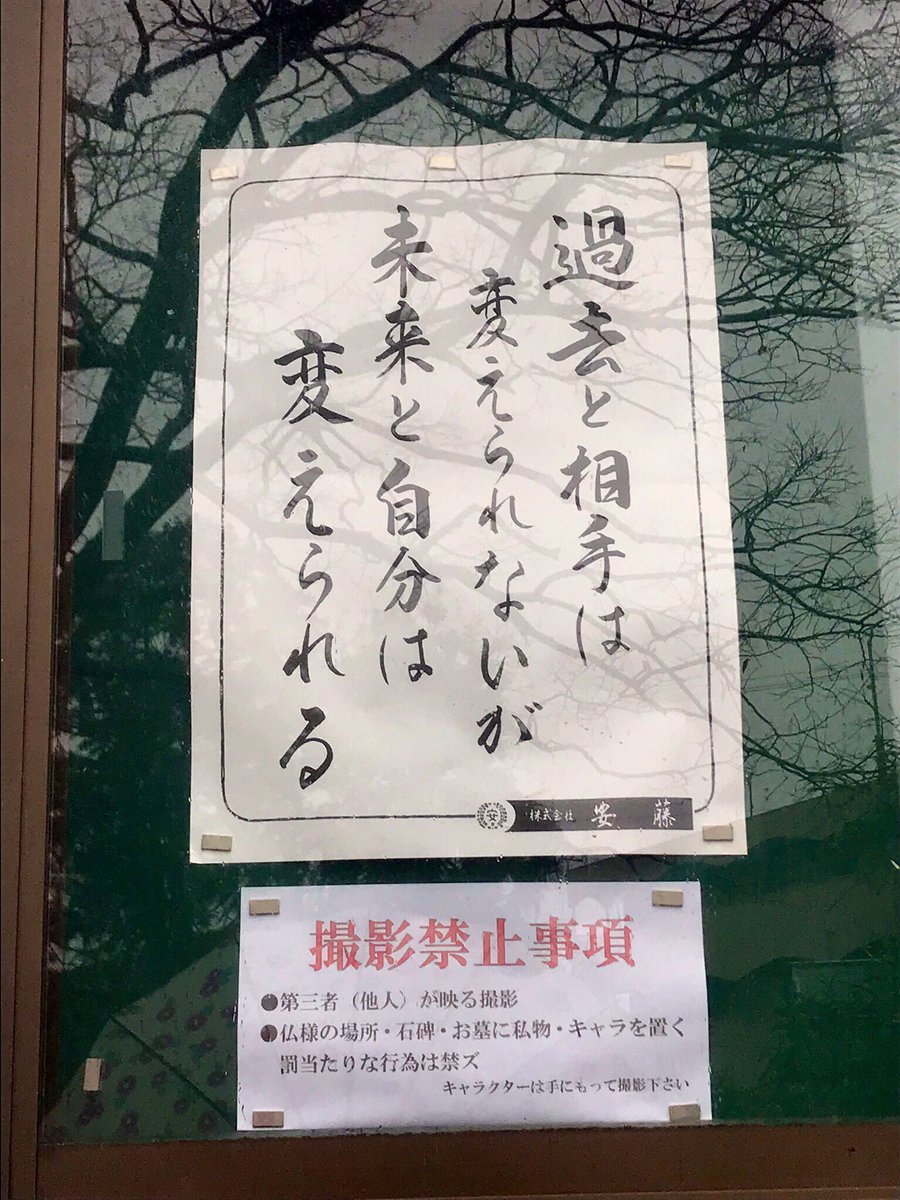 過去と相手は
変えられないが
未来と自分は
変えられる
安 株式会社 安藤
撮影禁止事項
●第三者（他人）が映る撮影
●仏様の場所・石碑・お墓に私物・キャラを置く
罰当たりな行為は禁ズ
キャラクターは手にもって撮影下さい